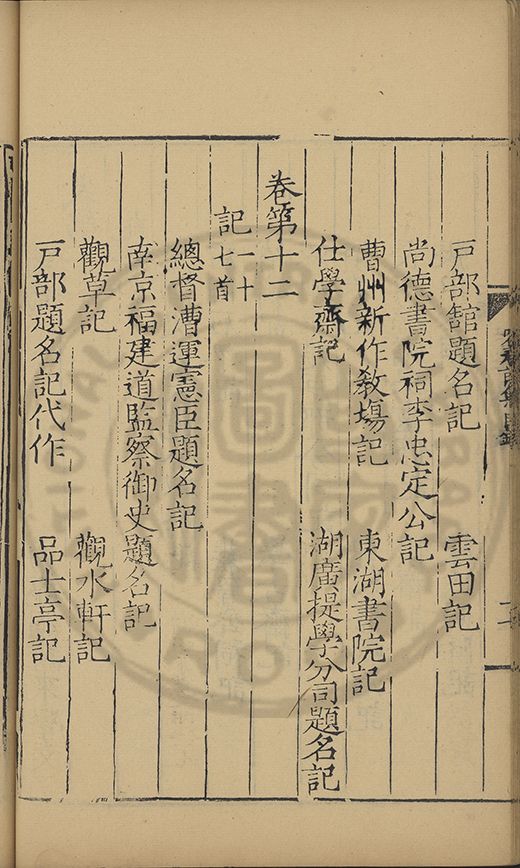 戸部舘題名記 雲田記
尚德書院祠李忠定公記
曹州新作教塲記 東湖書院記
仕學齋記 湖廣提學分司題名記
卷第十二
記一十七首
總督漕運憲臣題名記
南京福建道監察御史題名記
觀草記 觀水軒記
戸部題名記代作 品士亭記